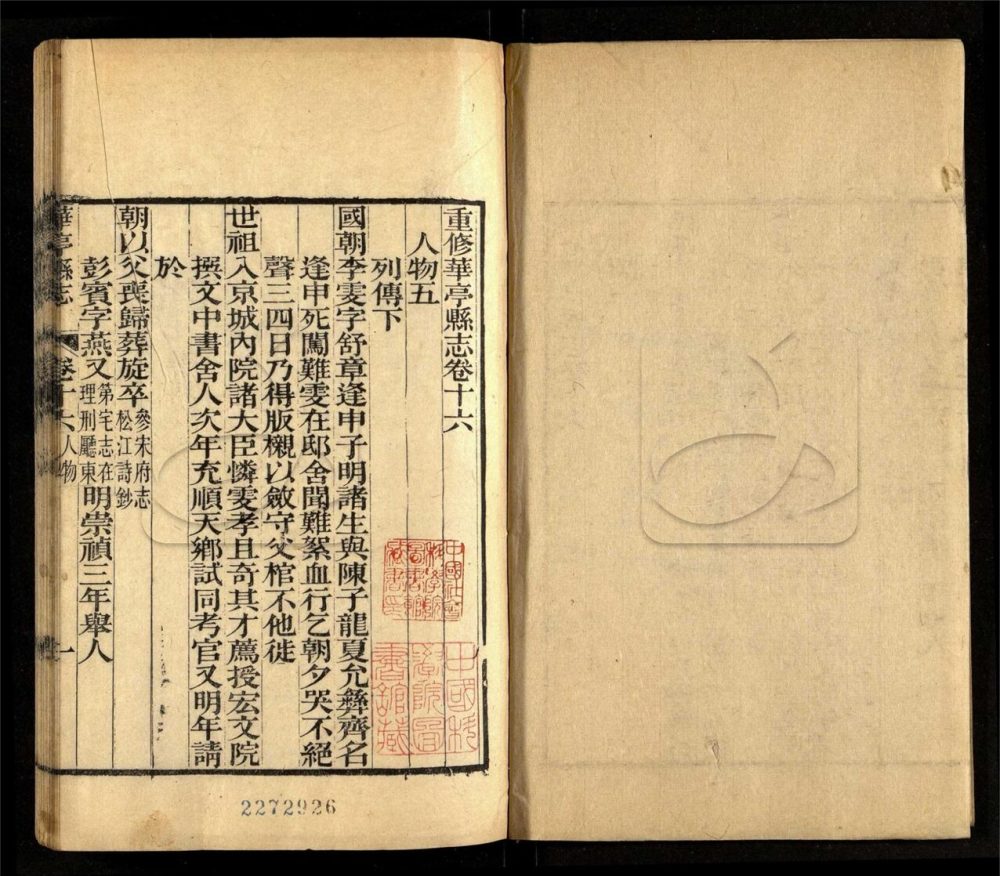 重修華亭縣志卷十六
人物五
列傳下
國朝李雯字舒章逢申子明諸生與陳子龍夏允彝齊名
逢申死闖難雯在邸舍聞難絮血行乞朝夕哭不絕
聲三四日乃得版櫬以斂守父棺不他徙
世祖入京城內院諸大臣憐雯孝且奇其才薦授宏文院
撰文中書舍人次年充順天鄉試同考官又明年請
於
朝以父喪歸葬旋卒參宋府志松江詩鈔
彭賓字燕又第宅志在理刑廳東明崇禎三年舉人
華亭縣志 卷十六 人物 一
中國科學院圖書館藏
2272926